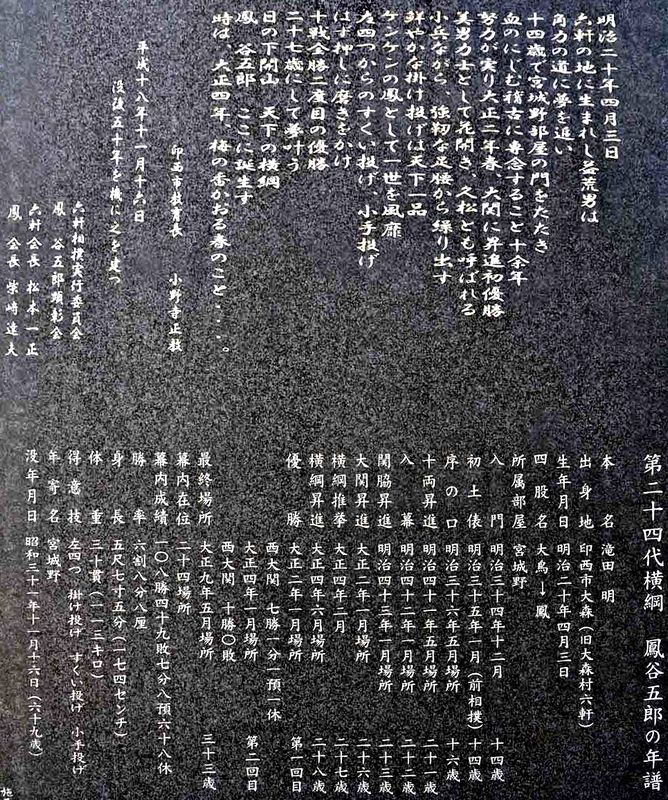 明治二十年四月三日
六軒の地に生まれし益荒男は
角力の道に夢を追い
十四歳で宮城野部屋の門をたたき
血のにじむ稽古に専念すること十余年
努力が実り大正二年春、大関に昇進初優勝
美男力士として花開き、久松とも呼ばれる
小兵ながら、強靭な足腰から繰り出す
鮮やかな掛け投げは天下一品
ケンケンの鳳として一世を風靡
左四つからのすくい投げ、小手投げ
はず押しに磨きをかけ
十戦全勝二度目の優勝
二十七歳にして夢叶う
日の下開山 天下の横綱
鳳 谷五郎 ここに誕生す
時は、大正四年、梅の香かおる春のこと・・・。
印西市教育長 小野寺正教
平成十八年十一月十六日
没後五十年を機に之を建つ
六軒相撲実行委員会
鳳 谷五郎顕彰会
六軒会長 松本一正
鳳 会長 柴崎達夫
第二十四代横綱 鳳谷五郎の年譜
本名 滝田 明
出身地 印西市大森(旧大森村六軒)
生年月日 明治二十年四月三日
四股名 大鳥→鳳
所属部屋 宮城野
入門 明治三十四年十二月 十四歳
初土俵 明治三十五年一月(前相撲) 十四歳
序の口 明治三十六年五月場所 十六歳
十両昇進 明治四十一年五月場所 二十一歳
入幕 明治四十二年一月場所 二十二歳
関脇昇進 明治四十三年一月場所
大関昇進 大正二年一月場所 二十六歳
横綱推挙 大正四年二月 二十七歳
横綱昇進 大正四年六月場所 二十八歳
優勝 大正二年一月場所 第一回目
西大関 七勝一分一預一休
大正四年一月場所 第二回目
西大関 十勝〇敗
最終場所 大正九年五月場所 三十三歳
幕内在位 二十四場所
幕内成績 一〇八勝四十九敗七分八預六十八休
勝率 六割八分八厘
身長 五尺七寸五分(一七四センチ)
体重 三十貫(一一三キロ)
得意技 左四つ 掛け投げ すくい投げ 小手投げ
年寄名 宮城野
没年月日 昭和三十一年十一月十六日(六十九歳)